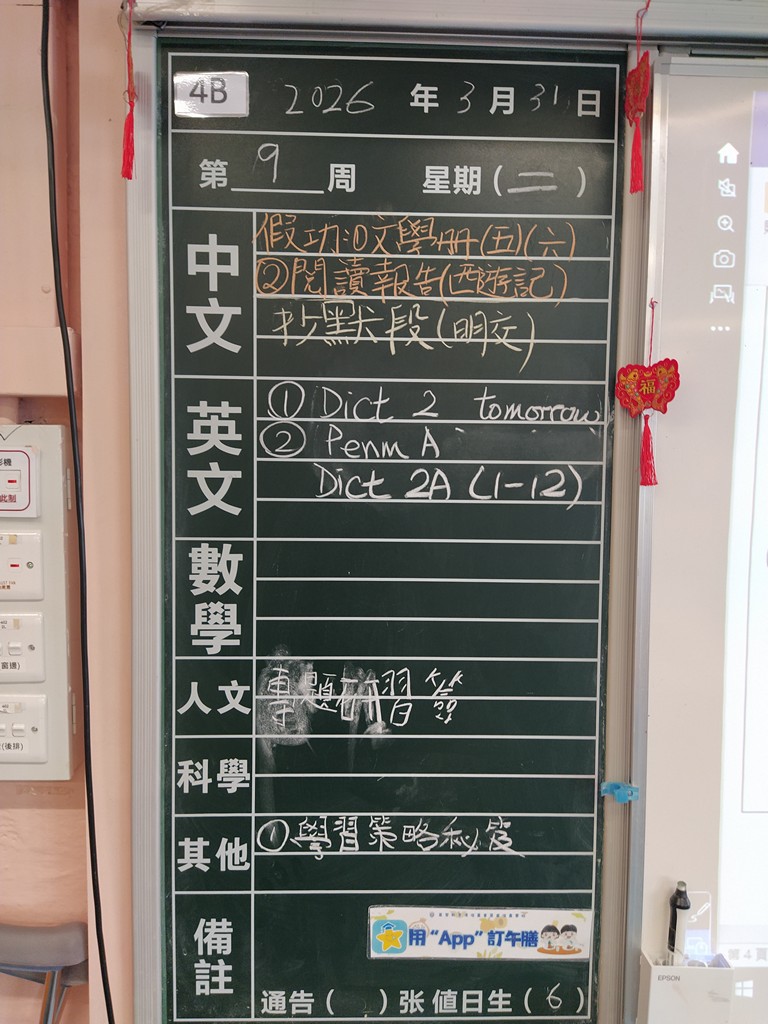 4B 2026 年 3 月 31 日
第 9 周 星期 (二)
中文
假功:①文學册(五)(六)
②閱讀報告(西遊記)
抄默段(明交)
英文
① Dict 2 tomorrow
② Penm A
Dict 2A (1-12)
數學
人文
專題研習
科學
其他
①學習策略秘笈
備註
用“App”訂午膳
通告 ( ) 张 值日生 (6)
EPSON
第 4 頁
福